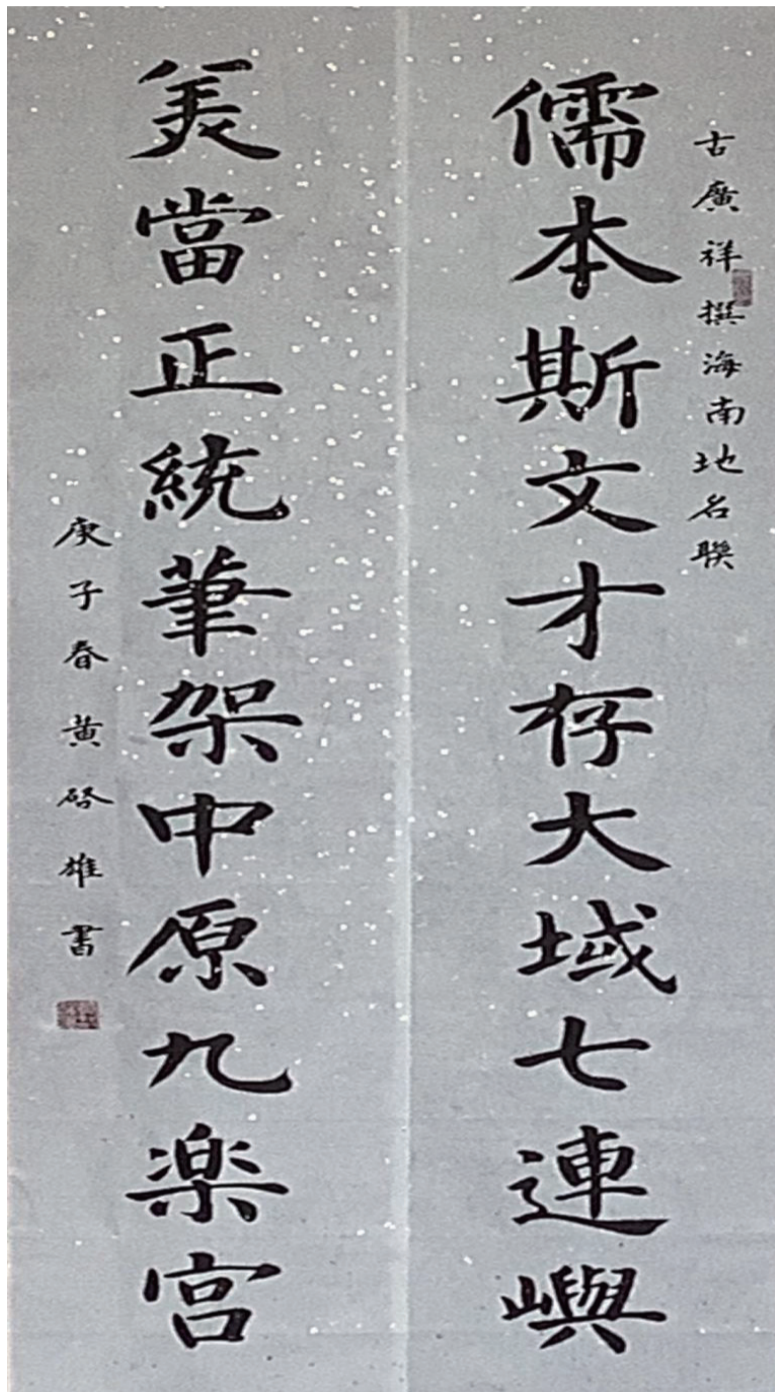 古廣祥撰海南地名聯
儒本斯文才存大域七連嶼
美當正統筆架中原九楽宫
庚子春黄啓雄書